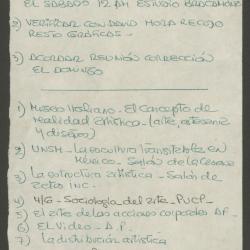 EL SABADO 12 AM ESTUDIO
2) VERIFICAR CON DANO HORA RECOJO
RESTO GRÁFICAS -
3) ACORDAR REUNIÓN CORRECCIÓN
EL DOMINGO
1) Museo Hoshiano - El concepto de
realidad artística - (arte, artesanía
y diseño)
2) UNSM - La escultura transitable en
México - Salón de la
3) La estructura artística - Salón de
actos INC.
4) 4/6 - Sociología del arte - PUCP -
5) El arte de las acciones corporales AP -
6) El Video - A.P.
7) La distribución artística